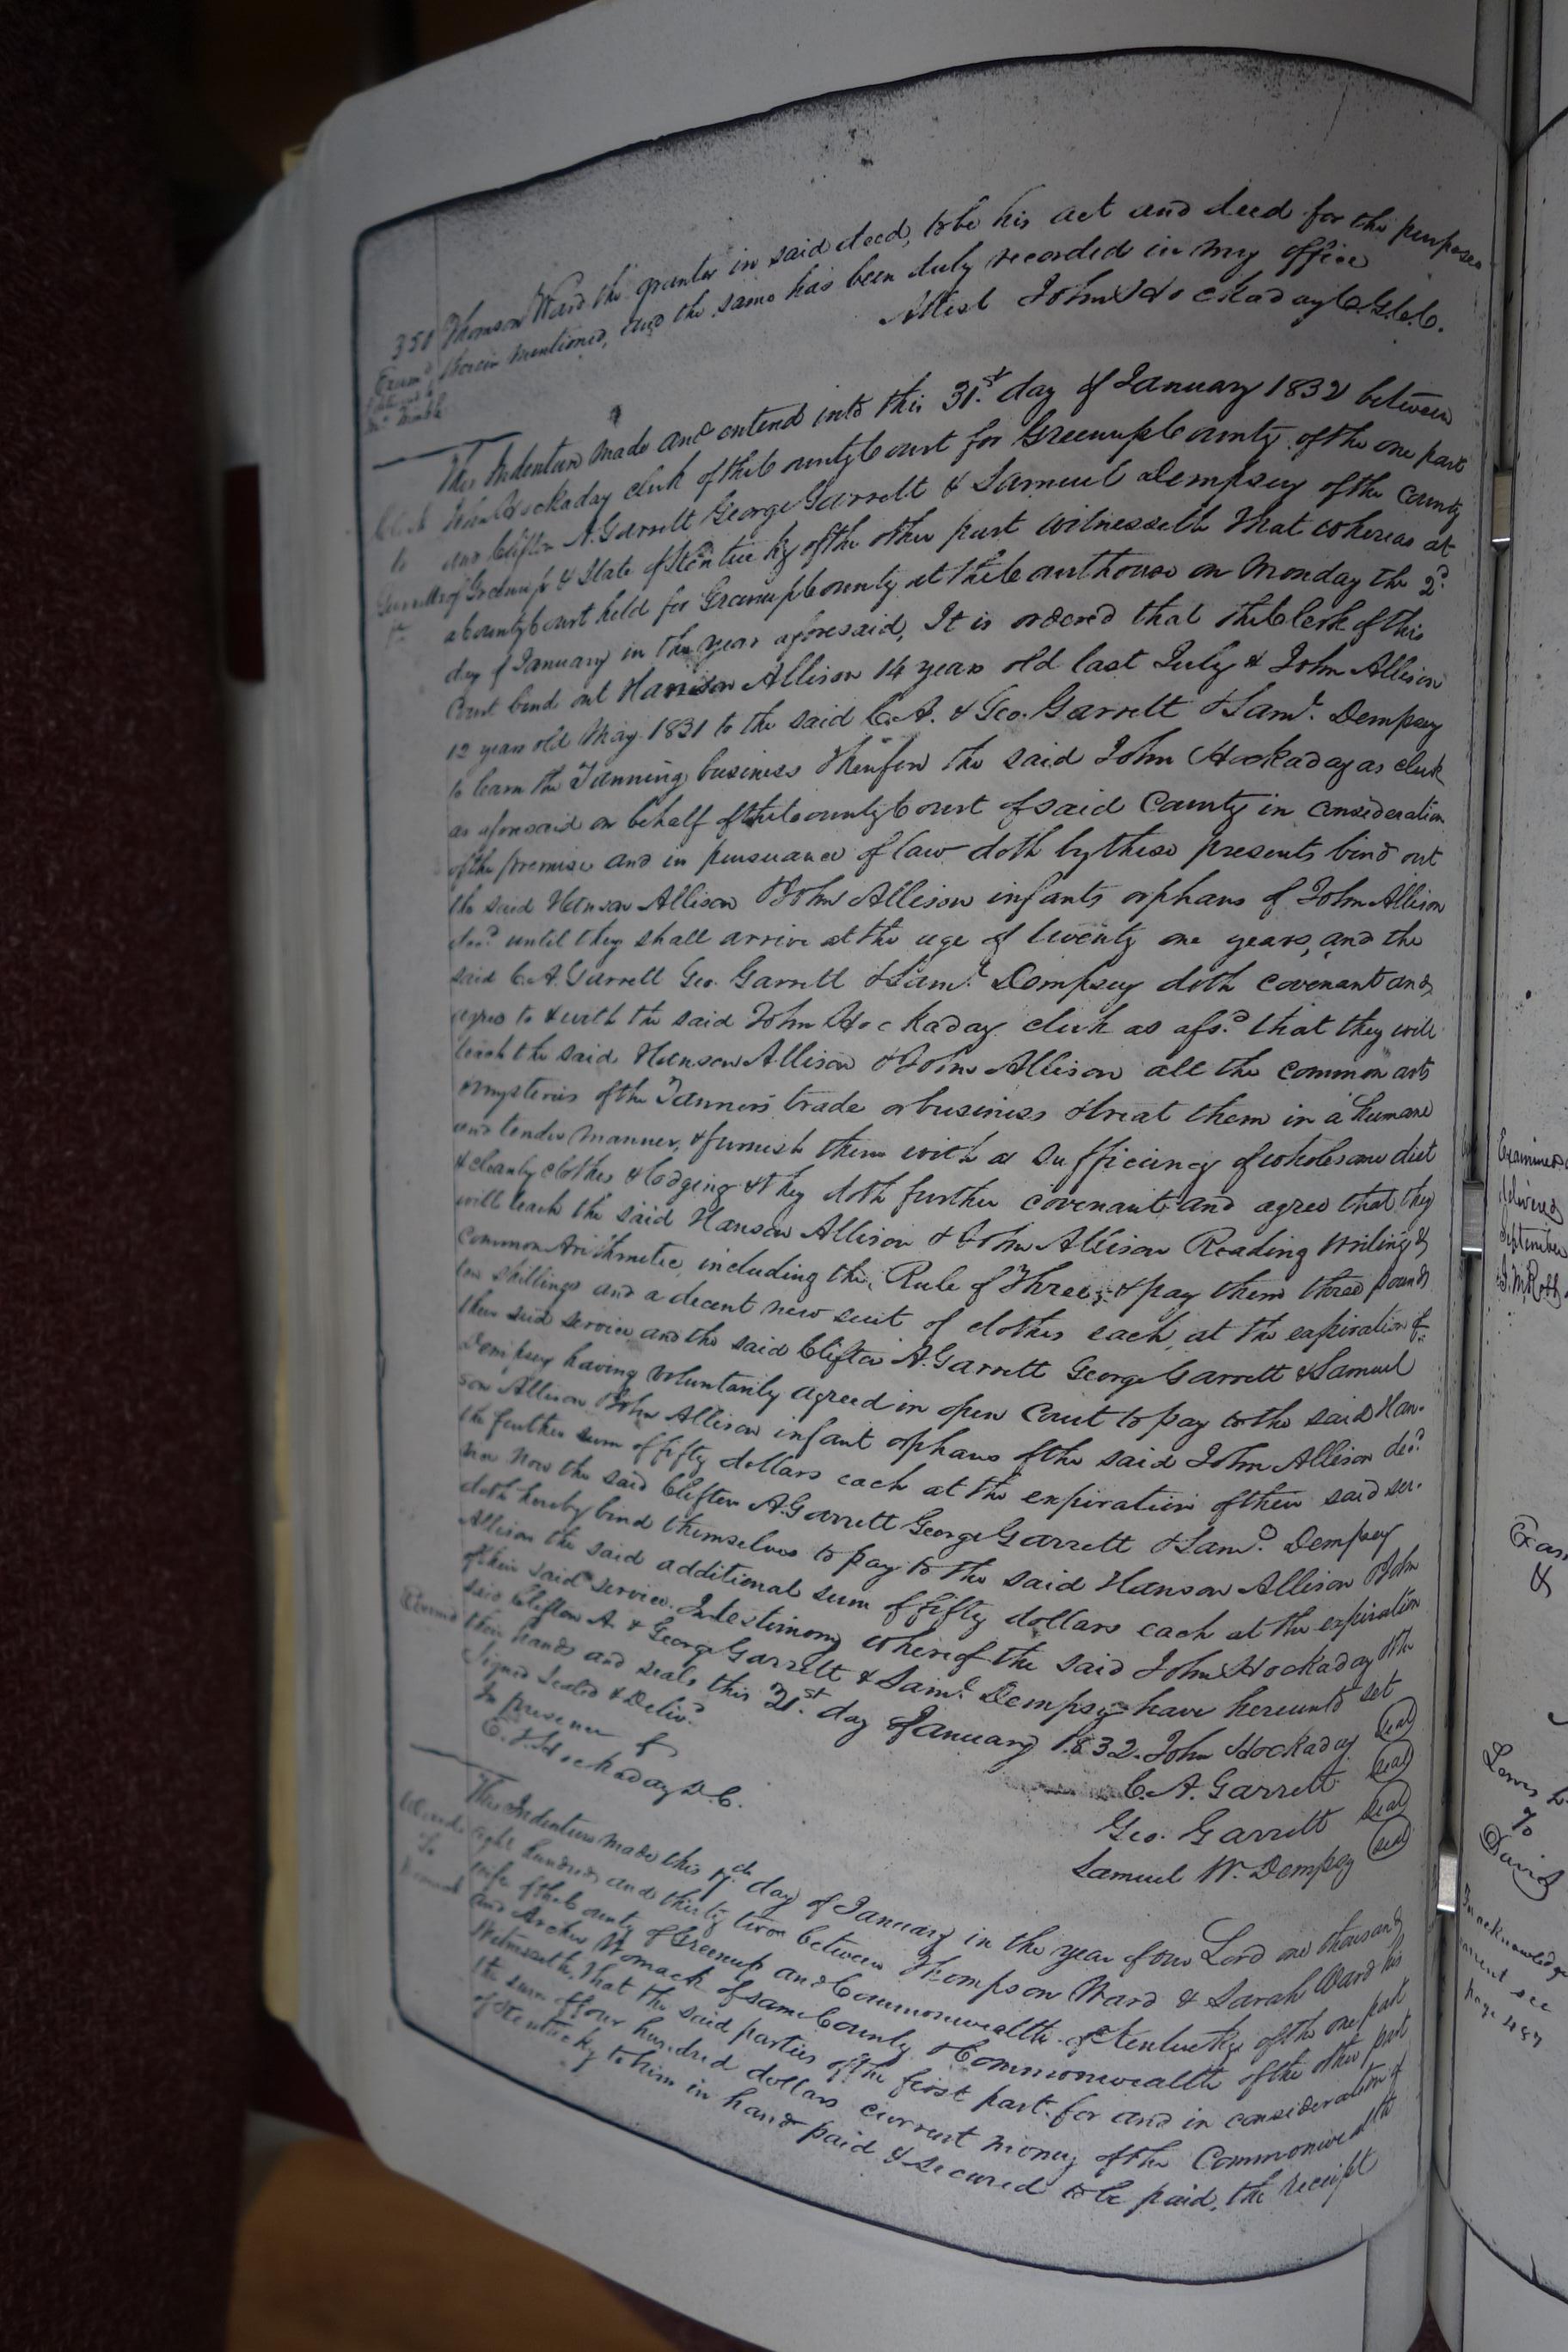 350 Thomson Ward the grantor in said deed, to be his act and deed for the purposes
Exam.d therein mentioned, and the same has been duly recorded in my office
Attest John Hockaday C.G.C.C.
This Indenture made and entered into this 31.st day of January 1832 between
John Hockaday clerk of the County Court for Greenup County of the one part
to and Clifton A. Garrett George Garrett & Samuel Dempsey of the County
of Greenup & State of Kentucky of the other part Witnesseth That whereas at
a County Court held for Greenup County at the Courthouse on Monday the 2.d
day of January in the year aforesaid, It is ordered that the Clerk of this
Court bind out Hanson Allison 14 years old last July & John Allison
12 years old May 1831 to the said C. A. & Geo. Garrett & Sam.l Dempsey
to learn the Tanning business Therefore the said John Hockaday as clerk
as aforesaid on behalf of the County Court of said County in consideration
of the premise and in pursuance of law doth by these presents bind out
the said Hanson Allison & John Allison infants orphans of John Allison
dec.d until they shall arrive at the age of twenty one years, and the
said C. A. Garrett Geo. Garrett & Sam.l Dempsey doth covenant and
agree to & with the said John Hockaday clerk as afs.d that they will
teach the said Hanson Allison & John Allison all the common arts
& mysteries of the Tanners trade or business & treat them in a humane
and tender manner, & furnish them with a sufficiency of wholesome diet
& cleanly clothes & lodging & they doth further covenant and agree that they
will teach the said Hanson Allison & John Allison Reading Writing &
Common Arithmetic, including the Rule of Three; & pay them three pounds
ten shillings and a decent new suit of clothes each, at the expiration of
their said service and the said Clifton A. Garrett George Garrett & Samuel
Dempsey having voluntarily agreed in open Court to pay to the said Han-
son Allison & John Allison infant orphans of the said John Allison dec.d
the further sum of fifty dollars each at the expiration of their said ser-
vice Now the said Clifton A. Garrett George Garrett & Sam.l Dempsey
doth hereby bind themselves to pay to the said Hanson Allison & John
Allison the said additional sum of fifty dollars each at the expiration
of their said service. In testimony whereof the said John Hockaday & the
said Clifton A. & George Garrett & Sam.l Dempsey have hereunto set
their hands and seals this 31.st day of January 1832. John Hockaday Seal
Signed Sealed & Deliv.d
In presence of
C. A. Garrett Seal
Hockaday D.C.
Geo. Garrett Seal
Samuel W. Dempsey Seal
This Indenture made this day of January in the year of our Lord one thousand
eight hundred and thirty two between Thompson Ward & Sarah Ward his
To wife of the County of Greenup and Commonwealth of Kentucky of the one part
Womack and Archer Womack of same County & Commonwealth of the other part
Witnesseth, That the said parties of the first part for and in consideration of
the sum of four hundred dollars current money of the Commonwealth
of Kentucky to him in hand paid & secured to be paid, the receipt
Examined
delivered
September
Lewis
To
David
page 487